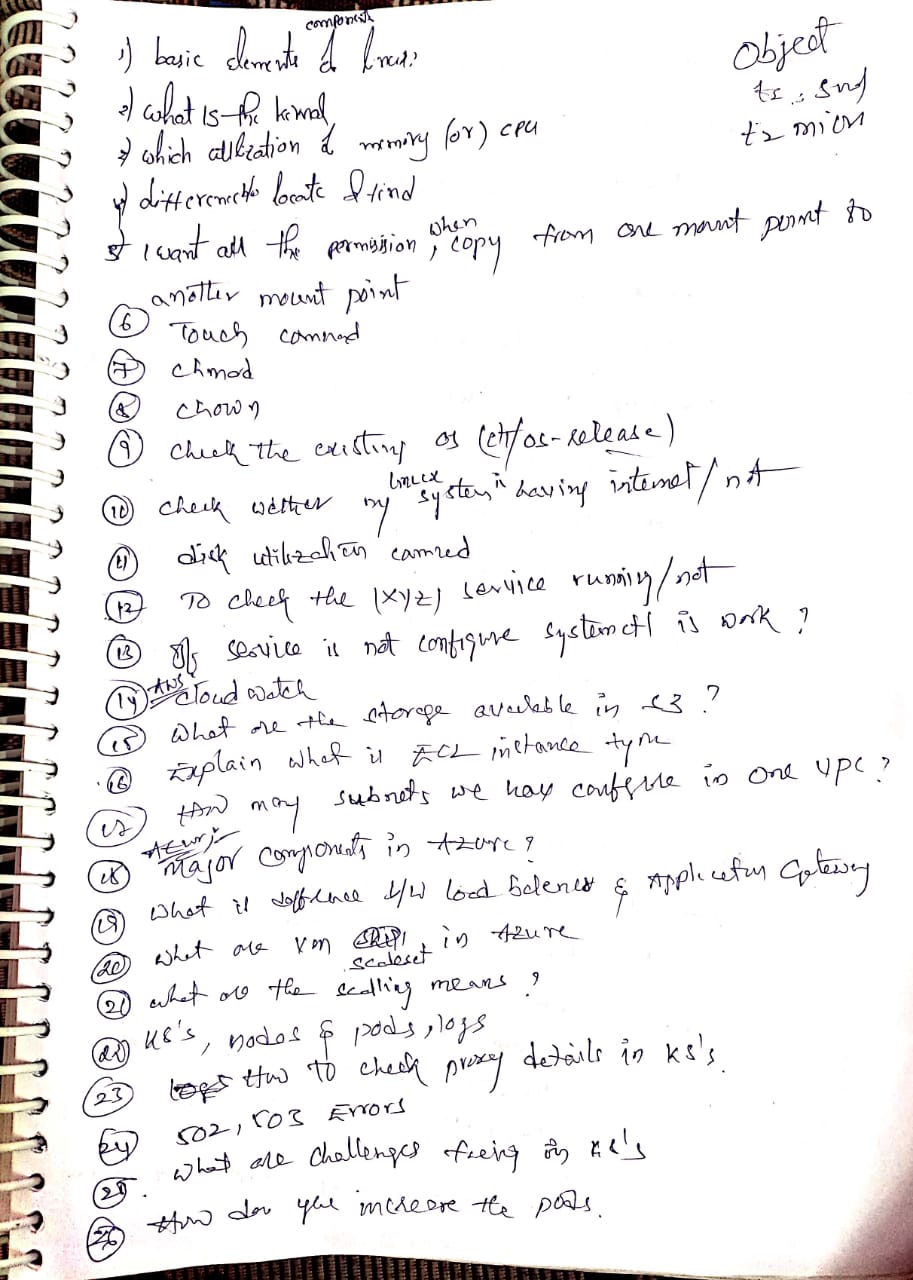 components
1) basic elements of linux:
2) what is the kernal
3) which utilization of memory (or) cpu
4) difference b/w locate & find
5) I want all the permission, when copy from one mount point to
another mount point
6 Touch command
7 chmod
8 chown
9 check the existing os (etc/os-release)
10 check wether my linux system is having internet/not
11 disk utilization command
12 To check the (xyz) service running/not
13 If service is not configure systemctl is work ?
14 ANS cloud watch
15 What are the storage available in S3 ?
16 Explain what is EC2 instance type
17 How many subnets we have configure in one VPC ?
Azure:-
18 Major components in Azure ?
19 What is difference b/w load balencer & Application Gateway
20 what are vm scaleset in Azure
21 what are the scalling means ?
22 K8's, nodes & pods, logs
23 How To check proxy details in K8's.
24 502, 503 Errors
25. What are challenges facing in K8's
26 How do you increase the pods.
Object